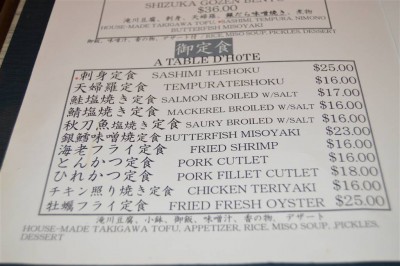 SHIZUKA GOZEN
$36.00
滝川豆腐、刺身、天婦羅、銀だら味噌焼き、煮物
HOUSE-MADE TAKIGAWA TOFU, SASHIMI, TEMPURA, NIMONO
BUTTERFISH MISOYAKI
御飯、味噌汁、香の物、デザート付 RICE, MISO SOUP, PICKLES, DESSERT
御定食
A TABLE D'HOTE
刺身定食 SASHIMI TEISHOKU $25.00
天婦羅定食 TEMPURATEISHOKU $16.00
鮭塩焼き定食 SALMON BROILED W/SALT $17.00
鯖塩焼き定食 MACKEREL BROILED W/SALT $16.00
秋刀魚塩焼き定食 SAURY BROILED W/SALT $16.00
銀鱈味噌焼き定食 BUTTERFISH MISOYAKI $23.00
海老フライ定食 FRIED SHRIMP $16.00
とんかつ定食 PORK CUTLET $16.00
ひれかつ定食 PORK FILLET CUTLET $18.00
チキン照り焼き定食 CHICKEN TERIYAKI $16.00
牡蠣フライ定食 FRIED FRESH OYSTER $25.00
滝川豆腐、小鉢、御飯、味噌汁、香の物、デザート
HOUSE-MADE TAKIGAWA TOFU, APPETIZER, RICE, MISO SOUP, PICKLES,
DESSERT